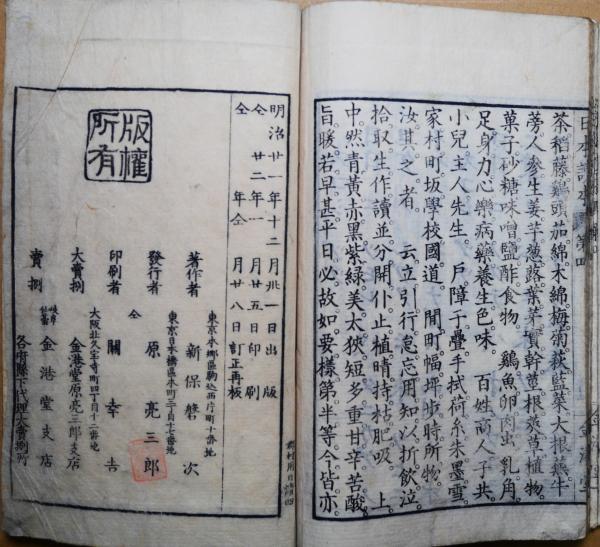 茶稻藤鷄頭茄綿木綿梅菊萩藍菜大根蕪牛
蒡人參生姜芋葱蕗葉莖實幹蔓根朶草植物。
菓子砂糖味噌鹽酢食物。 鷄魚卵肉出乳角
足身力心樂病藥養生色味。 百姓商人子共
小兒主人先生。 戸障子疊手拭荷糸朱墨雪。
家村町坂學校國道。 間町幅坪步時所物。
汝其之者。 云立引行怠忘用知以折飲泣
拾取生作讀並分開仆止植晴持枯肥吸。 上
中然青黄赤黑紫綠美太狹短多重甘辛苦酸
旨暖若早甚平日必故如要樣第半等今皆亦
金港堂
明治廿一年十二月卅一日出版
仝 廿二年一月廿五日印刷
仝 年仝月廿八日訂正再板
版權所有
著作者 新保磐次
東京本郷區駒込西片町十番地
發行者 原亮三郎
東京日本橋區本町三丁目十七番地
印刷者 仝 關幸吉
大阪北久宝寺町四丁目十二番地
大賣捌 金港堂原亮三郎支店
賣捌 岐阜仙臺 金港堂支店
各府縣下代理大賣捌所